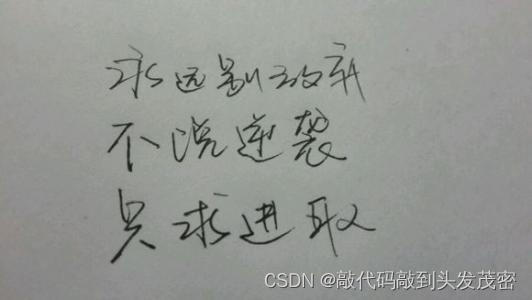 永远别放弃
不说逆袭
只求进取
CSDN @敲代码敲到头发茂密